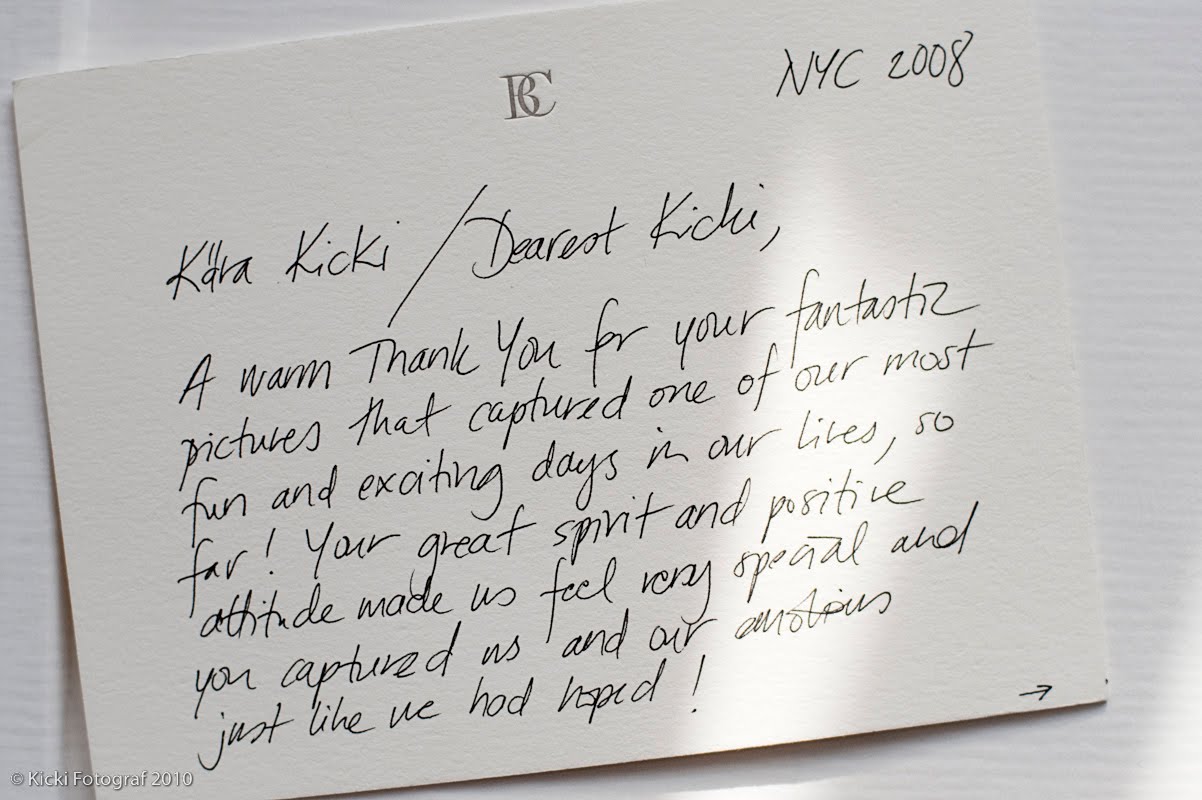 BC
NYC 2008
Kära Kicki / Dearest Kicki,
A warm Thank You for your fantastic
pictures that captured one of our most
fun and exciting days in our lives, so
far! Your great spirit and positive
attitude made us feel very special and
you captured us and our emotions
just like we had hoped!
→
© Kicki Fotograf 2010